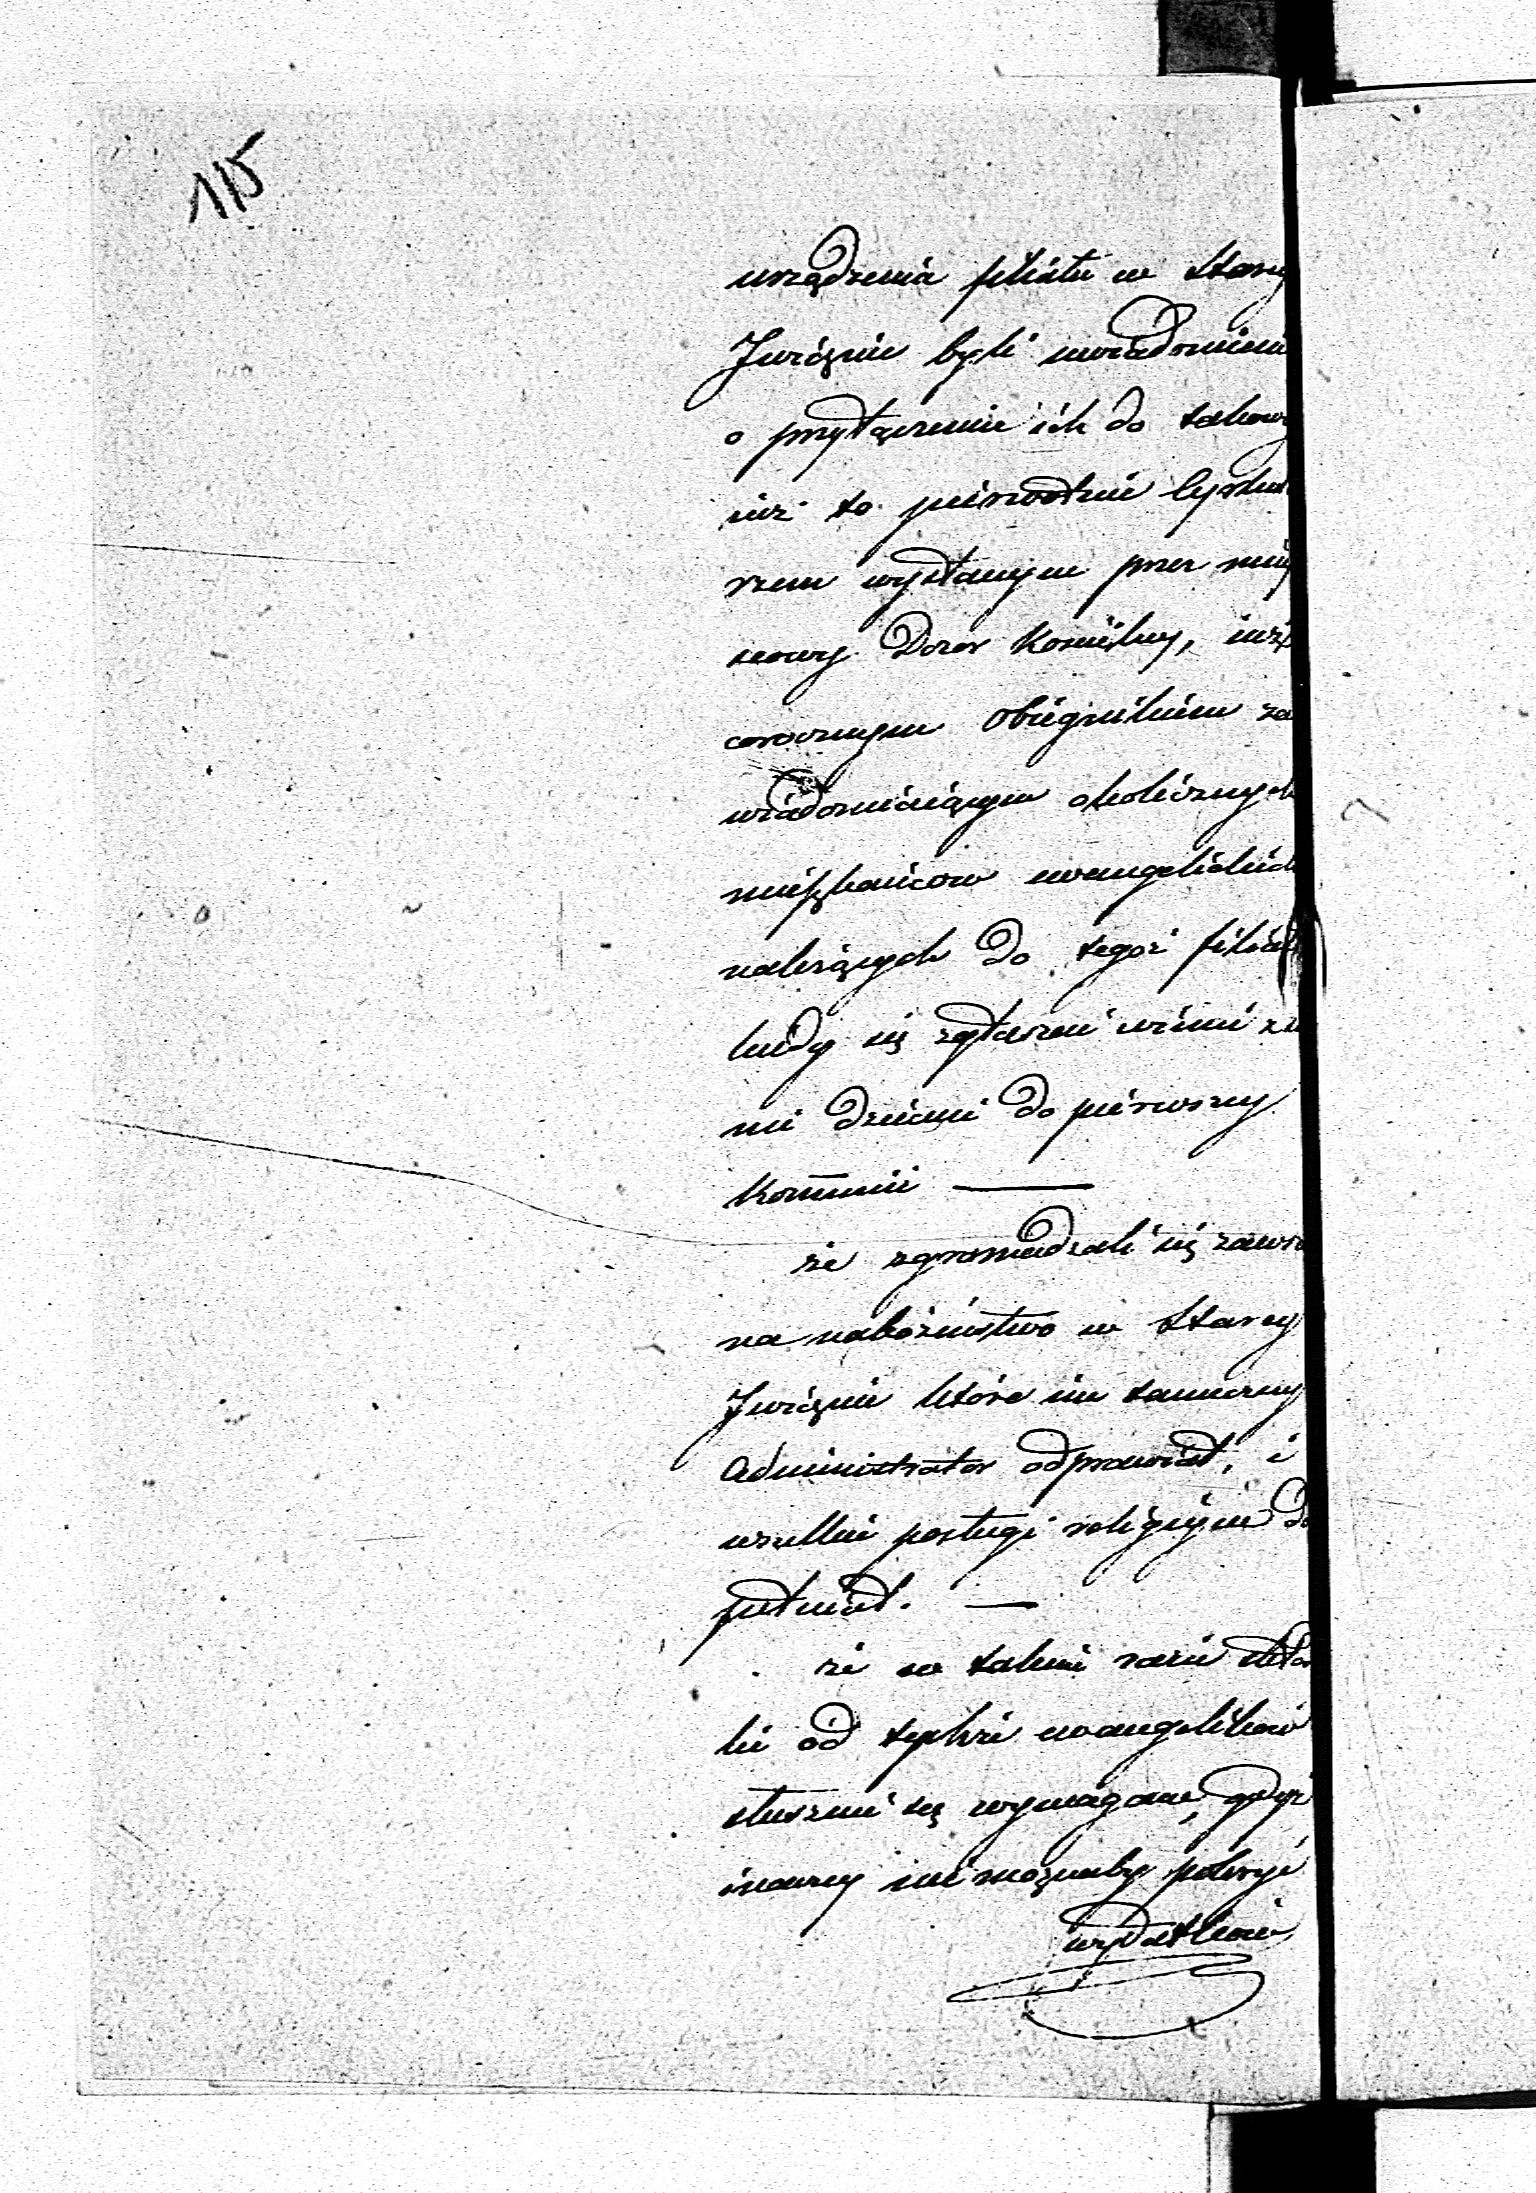 115
urządzenia filiału w Starej
Iwicznie byli uwiadomieni
o przyłączenie ich do takow
iuż to pierwotnie
rzem wysłanym przez miej
scowy Dozor Kościelny, iuż
corocznym Obiegnikiem za
wiadomiaiącym okolicznych
mieszkańcow ewangelickich
należących do tegoż filiału
kiedy się zgłaszać winni z
mi dziećmi do pierwszey
Kom̅unii —
że zgromadzali się zawsze
na nabożeństwo w Starey
Iwicznie które im tameczny
Administrator odprawiał, i
wszelkie posługi religijne do
pełniał. —
że w takim razie skład
ki od tychże ewangelików
słusznie są wymagane, gdyż
inaczey nie możnaby pokryć
wydatków